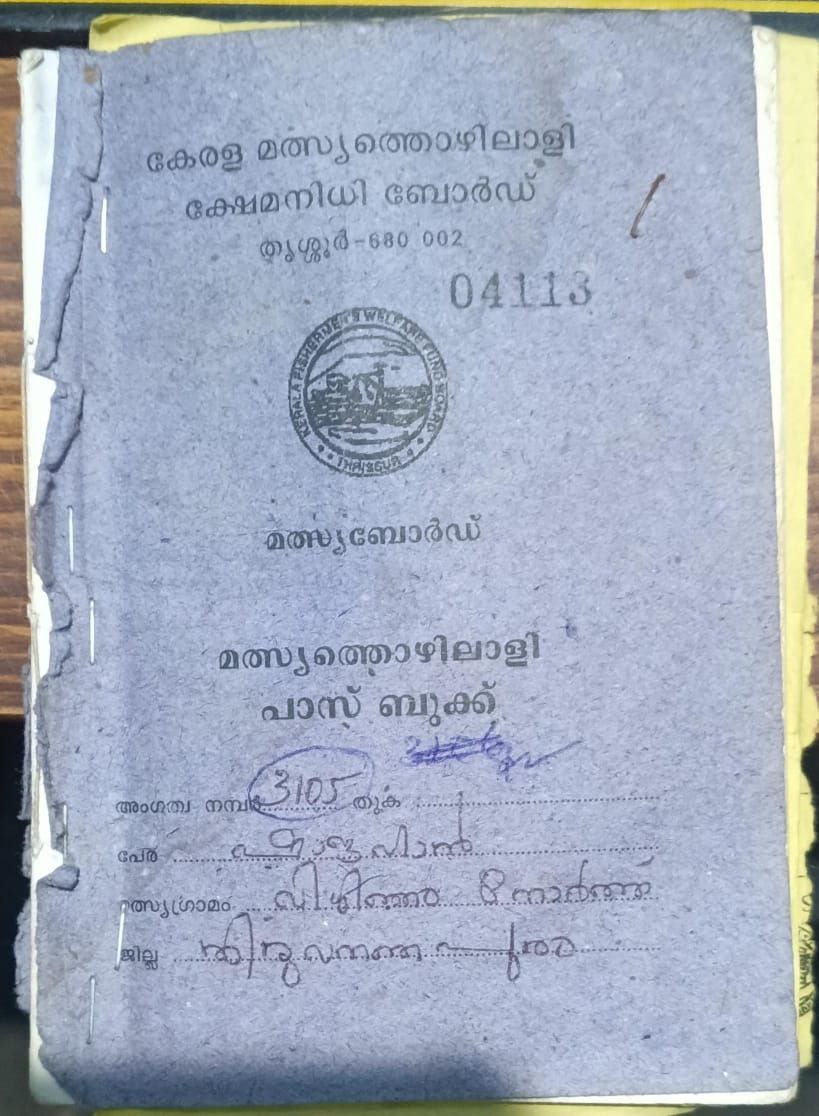 കേരള മത്സ്യത്തൊഴിലാളി
ക്ഷേമനിധി ബോർഡ്
തൃശ്ശൂർ-680 002
04113
KERALA FISHERMEN'S WELFARE FUND BOARD
THRISSUR
മത്സ്യബോർഡ്
മത്സ്യത്തൊഴിലാളി
പാസ് ബുക്ക്
അംഗത്വ നമ്പർ 3105 തുക
പേര്
മത്സ്യഗ്രാമം വിഴിഞ്ഞം നോർത്ത്
ജില്ല തിരുവനന്തപുരം